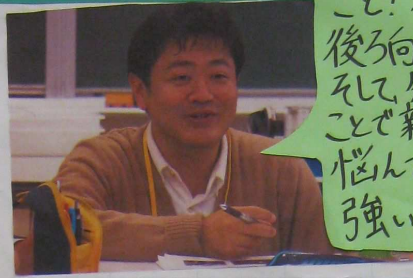 こと!
後ろ向
そして,
ことで
悩ん
強い